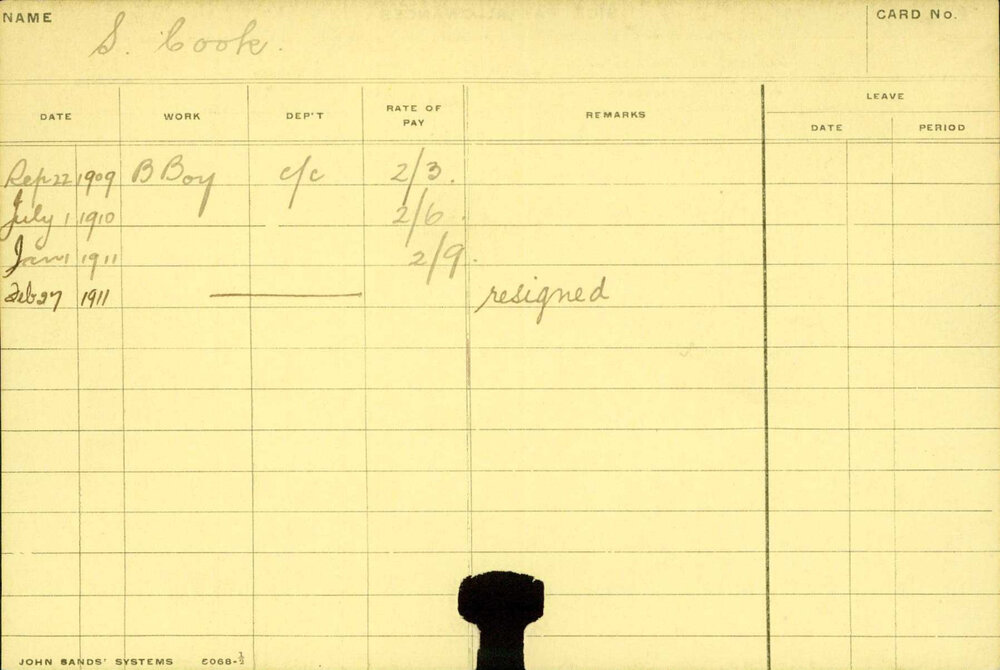 NAME S. Cook. CARD No.
LEAVE
DATE WORK DEP'T RATE OF PAY REMARKS DATE PERIOD
Sep 22 1909 B Boy c/c 2/3.
July 1 1910 2/6.
Jan 1 1911 2/9.
Feb 27 1911 resigned
JOHN SANDS' SYSTEMS 5068-½